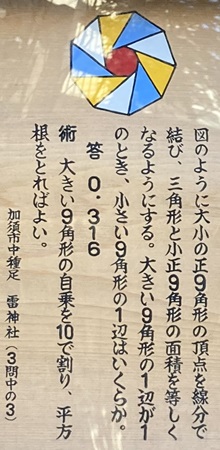 図のように大小の正9角形の頂点を線分で
結び、三角形と小正9角形の面積を等しく
なるようにする。大きい9角形の1辺が1
のとき、小さい9角形の1辺はいくらか。
答 0.316
術 大きい9角形の自乗を10で割り、平方
根をとればよい。
加須市中種足 雷神社(3問中の3)